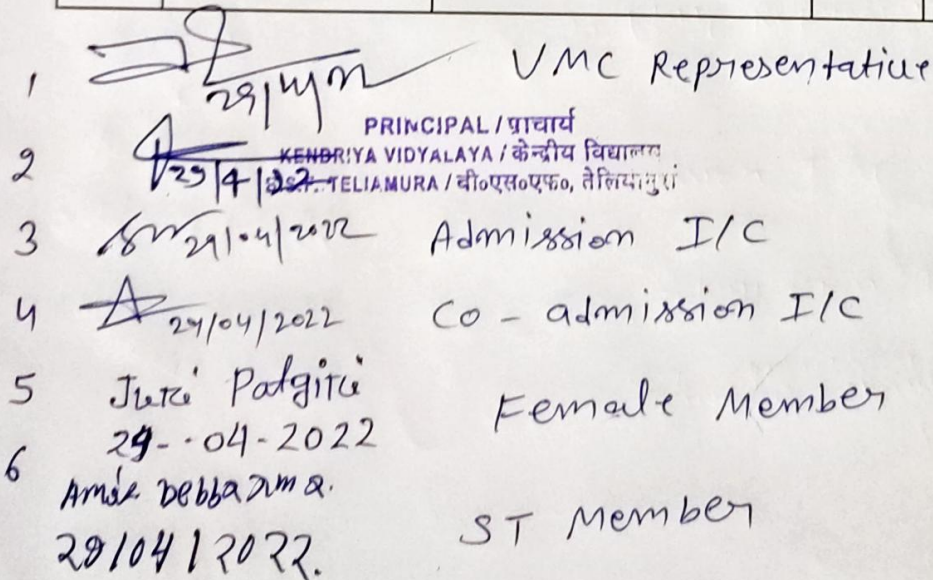 1 29/4/22 VMC Representative
PRINCIPAL / प्राचार्य
2 KENDRIYA VIDYALAYA / केन्द्रीय विद्यालय
29/4/22 TELIAMURA / बी०एस०एफ०, तेलियामुरा
3 29/04/2022 Admission I/C
4 29/04/2022 Co - admission I/C
5 Juri Patgiri Female Member
29-04-2022
6
Amar Debbarma.
29/04/2022. ST Member